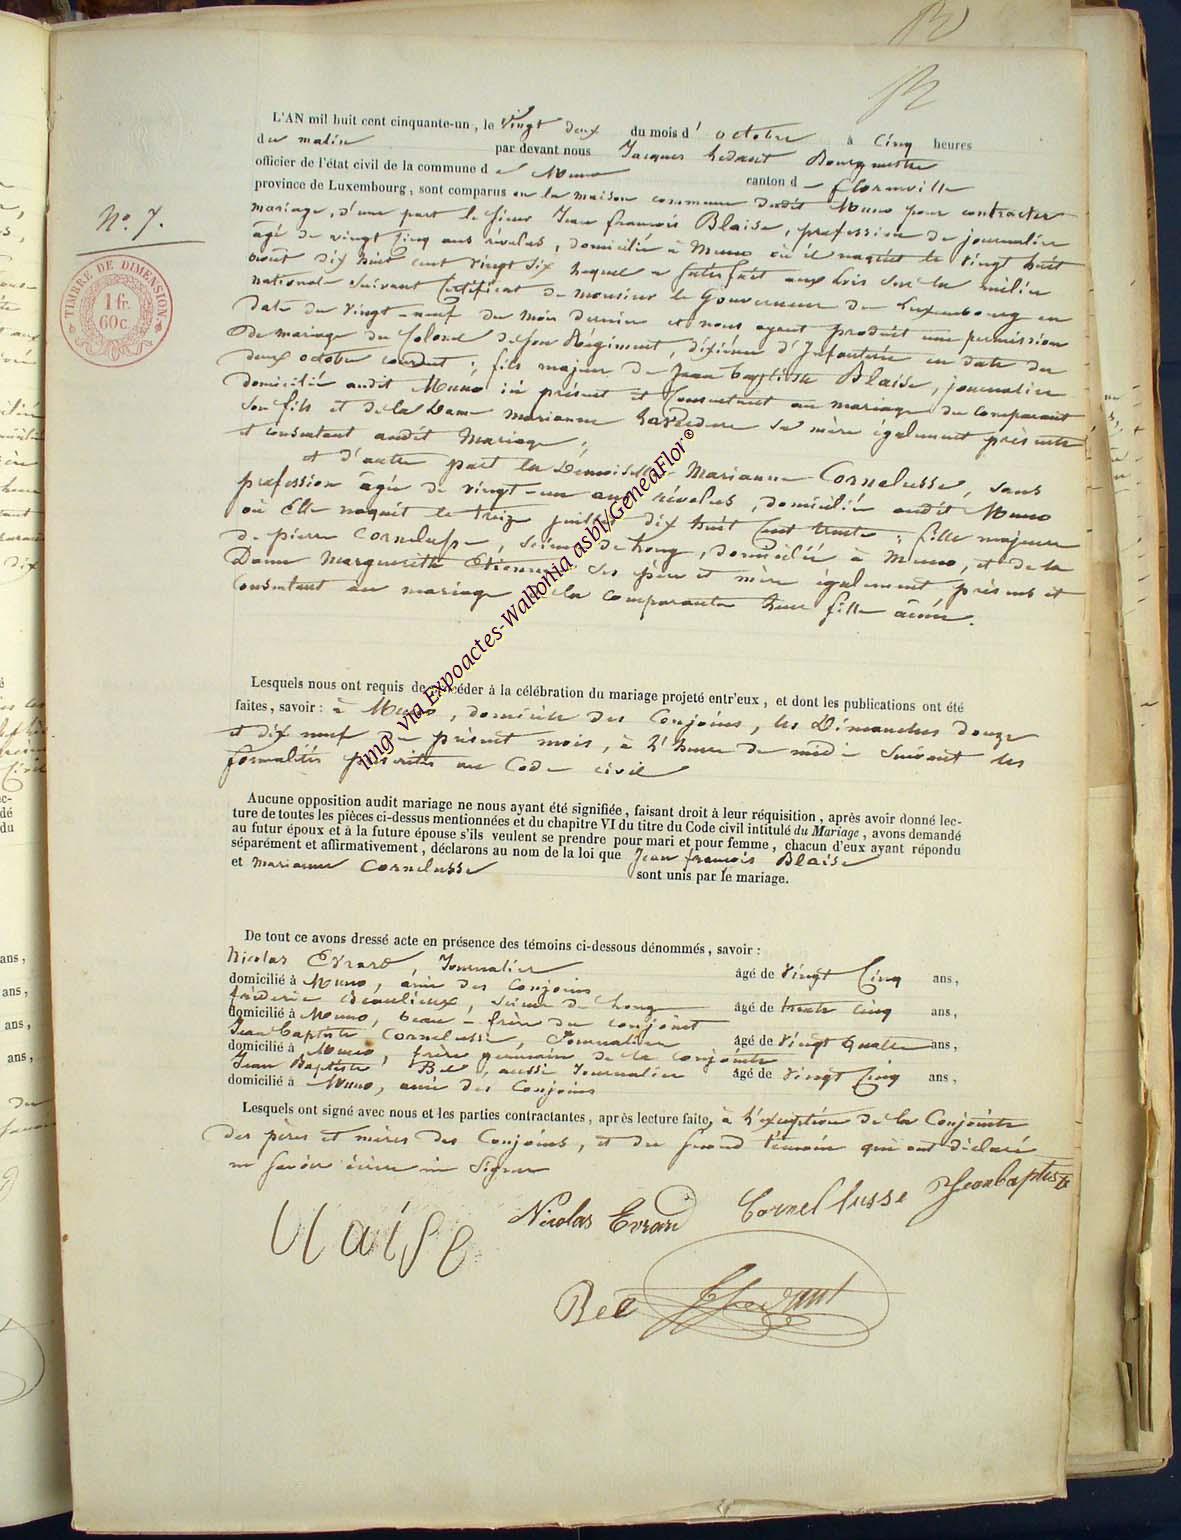 L'AN mil huit cent cinquante-un, le vingt deux du mois d' octobre à cinq heures
du matin par devant nous Jacques hedant Bourgmestre
officier de l'état civil de la commune d e Muno canton d e florenville
province de Luxembourg, sont comparus en la maison commune dudit Muno pour contracter
mariage, d'une part le sieur Jean françois Blaise, profession de journalier
âgé de vingt cinq ans révolus, domicilié à Muno où il naquit le vingt huit
août dix huit cent vingt six lequel a satisfait aux lois sur la milice
nationale suivant certificat de monsieur le Gouverneur du Luxembourg en
date du vingt-neuf du mois dernier et nous ayant produit une permission
de mariage du Colonel de son Régiment, dixième d'Infanterie en date du
deux octobre courant; fils majeur de Jean baptiste Blaise, journalier
domicilié audit Muno ici présent et consentant au mariage du comparant
son fils et de la Dame Marianne sa mère également présente
et consentant audit Mariage;
et d'autre part la Demoiselle Marianne Cornelusse, sans
profession âgée de vingt-un ans révolus, domiciliée audit Muno
où Elle naquit le treize juillet dix huit cent trente; fille majeure
de pierre Cornelusse, scieur de long, domicilié à Muno, et de la
Dame Marguerite Etienne ses père et mère également présens et
consentant au mariage de la comparante leur fille aînée.
Lesquels nous ont requis de procéder à la célébration du mariage projeté entr'eux, et dont les publications ont été
faites, savoir: à Muno, domicile des Conjoins, les Dimanches douze
et dix neuf du présent mois, à l'heure de midi suivant les
formalités prescrites au Code civil
Aucune opposition audit mariage ne nous ayant été signifiée, faisant droit à leur réquisition, après avoir donné lec-
ture de toutes les pièces ci-dessus mentionnées et du chapitre VI du titre du Code civil intitulé du Mariage, avons demandé
au futur époux et à la future épouse s'ils veulent se prendre pour mari et pour femme, chacun d'eux ayant répondu
séparément et affirmativement, déclarons au nom de la loi que Jean françois Blaise
et marianne Cornelusse sont unis par le mariage.
De tout ce avons dressé acte en présence des témoins ci-dessous dénommés, savoir:
Nicolas Evrard, Journalier âgé de vingt Cinq ans,
domicilié à Muno, ami des Conjoins
fréderic Beaulieux, scieur de long âgé de trente cinq ans,
domicilié à Muno, beau-frère du conjoint
Jean baptiste Cornelusse, Journalier âgé de vingt quatre ans,
domicilié à Muno, frère germain de la conjointe
Jean Baptiste Bel, aussi Journalier âgé de vingt Cinq ans,
domicilié à Muno, ami des Conjoins
Lesquels ont signé avec nous et les parties contractantes, après lecture faite, à l'exception de la Conjointe
des pères et mères des Conjoins, et du second témoin qui ont déclaré
ne savoir écrire ni signer
Blaise Nicolas Evrard Cornellusse Jeanbaptiste
Bel hedant
No. 7.
TIMBRE DE DIMENSION
1 fr.
60c.
img via Expoactes-Wallonia asbl/GeneaFlor®